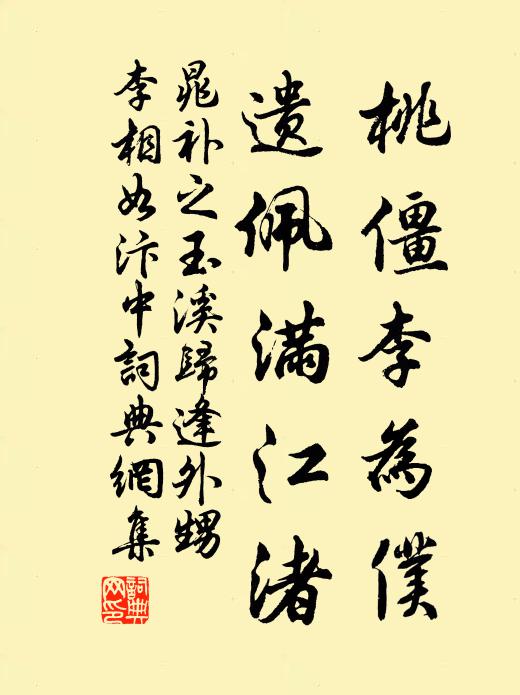 桃僵李為僕
遗佩满江渚
晁补之玉溪歸逢外甥
李相如汴中詞典網集